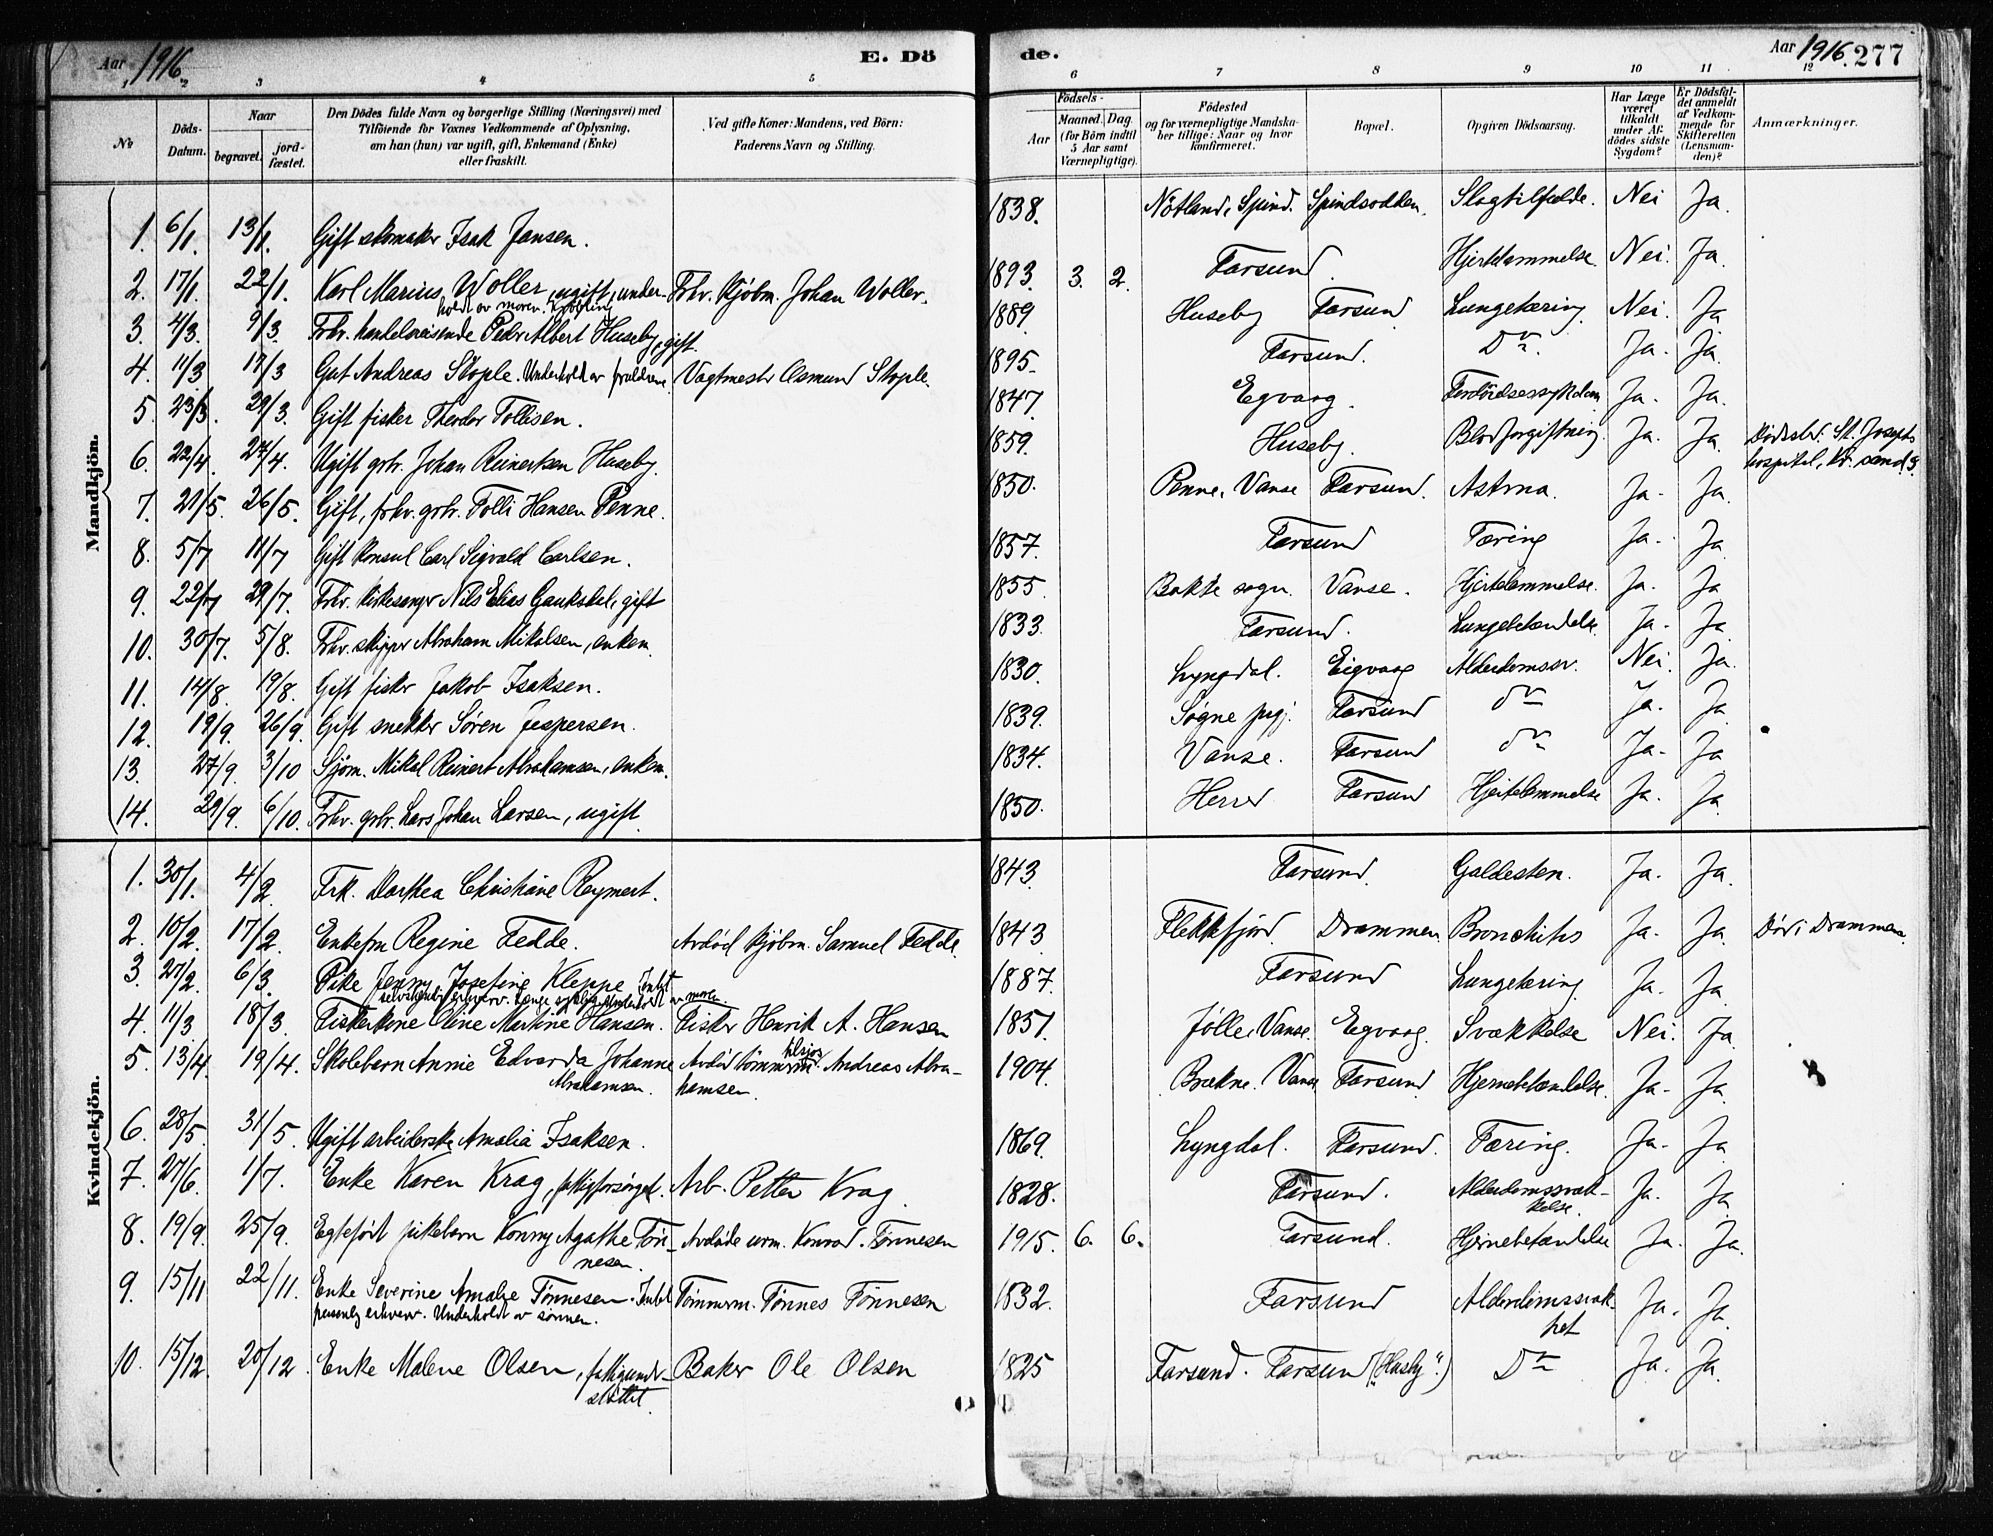 Aar 1916. E. Döde. Aar 1916. 277
1 2 3 4 5 6 7 8 9 10 11 12
No
Döds-Datum.
Naar begravet. jordfæstet.
Den Dödes fulde Navn og borgerlige Stilling (Næringsvei) med Tilföiende for Voxnes Vedkommende af Oplysning, om han (hun) var ugift, gift, Enkemand (Enke) eller fraskilt.
Ved gifte Koner: Mandens, ved Börn: Faderens Navn og Stilling.
Födsels- Aar Maaned. Dag (for Börn indtil 5 Aar samt Værnepligtige).
Födested og for værnepligtige Mandskaber tillige: Naar og hvor konfirmeret.
Bopæl.
Opgiven Dödsaarsag.
Har Læge været tilkaldt under Afdödes sidste Sygdom?
Er Dödsfaldet anmeldt af Vedkommende for Skifteretten (Lensmanden)?
Anmærkninger.
Mandkjön.
1. 6/1. 13/1. Gift skomaker Isak Jansen. 1838. Nötland, Spind. Spindsodden. Slagtilfælde. Nei Ja.
2. 17/1. 22/1. Karl Marius Woller, ugift, underholdt av moren. Frhv. kjöbm. Johan Woller. 1893 3. 2. Farsund. Hjertelammelse. Nei. Ja.
3. 4/3. 9/3. Frhv. handelsreisende Peder Albert Huseby, gift. 1889. Huseby Farsund Lungetæring. Nei. Ja
4. 11/3 17/3 Gut Andreas Stople. Underholdt av forældrene. Vagtmester Osmund Stople. 1895. Farsund. Do. Ja. Ja.
5. 23/3. 29/3. Gift fisker Theodor Tollisen. 1847. Egvaag. Fordöielsessykdom Ja. Ja.
6. 22/4. 27/4. Ugift grbr. Johan Reinertsen Huseby. 1859. Huseby. Blodforgiftning. Ja. Ja. Dödssted: St. Josephs hospital, Kr.sand S.
7. 21/5. 26/5. Gift, frhv. grbr. Tolli Hansen Penne. 1850. Penne, Vanse Farsund. Astma. Ja. Ja.
8. 5/7 11/7 Gift konsul Carl Sigvald Carlsen. 1857. Farsund Tæring Ja. Ja
9. 22/7 29/7. Frhv. kirkesanger Nils Elias Gaukstel, gift 1855. Bakke sogn. Vanse. Hjertelammelse. Ja. Ja
10. 30/7. 5/8. Frhv. skipper Abraham Mikalsen, enkem. 1833. Farsund. Lungebetændelse. Ja. Ja.
11. 14/8 19/8. Gift fisker Jakob Isaksen. 1830. Lyngdal. Eigvaag Alderdomssv. Nei. Ja.
12. 19/9. 26/9. Gift snekker Sören Jespersen. 1839. Søgne prgj. Farsund do Ja. Ja
13. 27/9. 3/10 Sjöm. Mikal Reinert Abrahamsen, enkem. 1834. Vanse. Farsund do Ja. Ja
14. 29/9. 6/10. Frhv. grbr. Lars Johan Larsen, ugift 1850. Herred Farsund Hjertelammelse Ja. Ja.
Kvindekjön.
1. 30/1. 4/2. Frk. Dorthea Christiane Reymert. 1843. Farsund. Galdesten. Ja. Ja.
2. 10/2. 17/2. Enkefru Regine Fedde. Avdöd kjöbm. Samuel Fedde. 1843 Flekkefjord. Drammen. Bronchitis Ja. Ja. Död i Drammen.
3. 27/2. 6/3. Pike Jenny Josefine Kleppe. Intet selvstændig erhverv. Længe sykelig. Underholdt av moren. 1887. Farsund Lungetæring. Ja. Ja.
4. 11/3. 18/3. Fiskerkone Oline Martine Hansen. Fisker Henrik A. Hansen 1851. Jölle, Vanse. Eegvaag. Svækkelse Nei. Ja.
5. 13/4. 19/4. Skolebarn Annie Edvarda Johanne Abrahamsen. Avdöd tömmerm. tilsjøs Andreas Abrahamsen. 1904. Brekne, Vanse Farsund. Hjernebetændelse. Ja. Ja
6. 28/5. 31/5. Ugift arbeiderske Amalia Isaksen. 1869. Lyngdal. Farsund. Tæring. Ja. Ja
7. 27/6. 1/7. Enke Karen Krag, fattigforsörget. Arb. Petter Krag. 1828. Farsund. Alderdomssvækkelse. Ja. Ja
8. 19/9. 25/9. Egtefödt pikebarn Konny Agathe Tönnesen. Avdöde urm. Konrad Tönnesen 1915. 6. 6. Farsund. Hjernebetændelse Ja. Ja.
9. 15/11 22/11. Enke Severine Amalie Tönnesen. Intet personlig erhverv. Underholdt av sönnen. Tömmerm. Tönnes Tönnesen 1832. Farsund Alderdomssvakhet Ja. Ja.
10. 15/12. 20/12. Enke Malene Olsen, fattigunderstöttet. Baker Ole Olsen 1825 Farsund. Farsund ("Husby".) Do Ja. Ja.